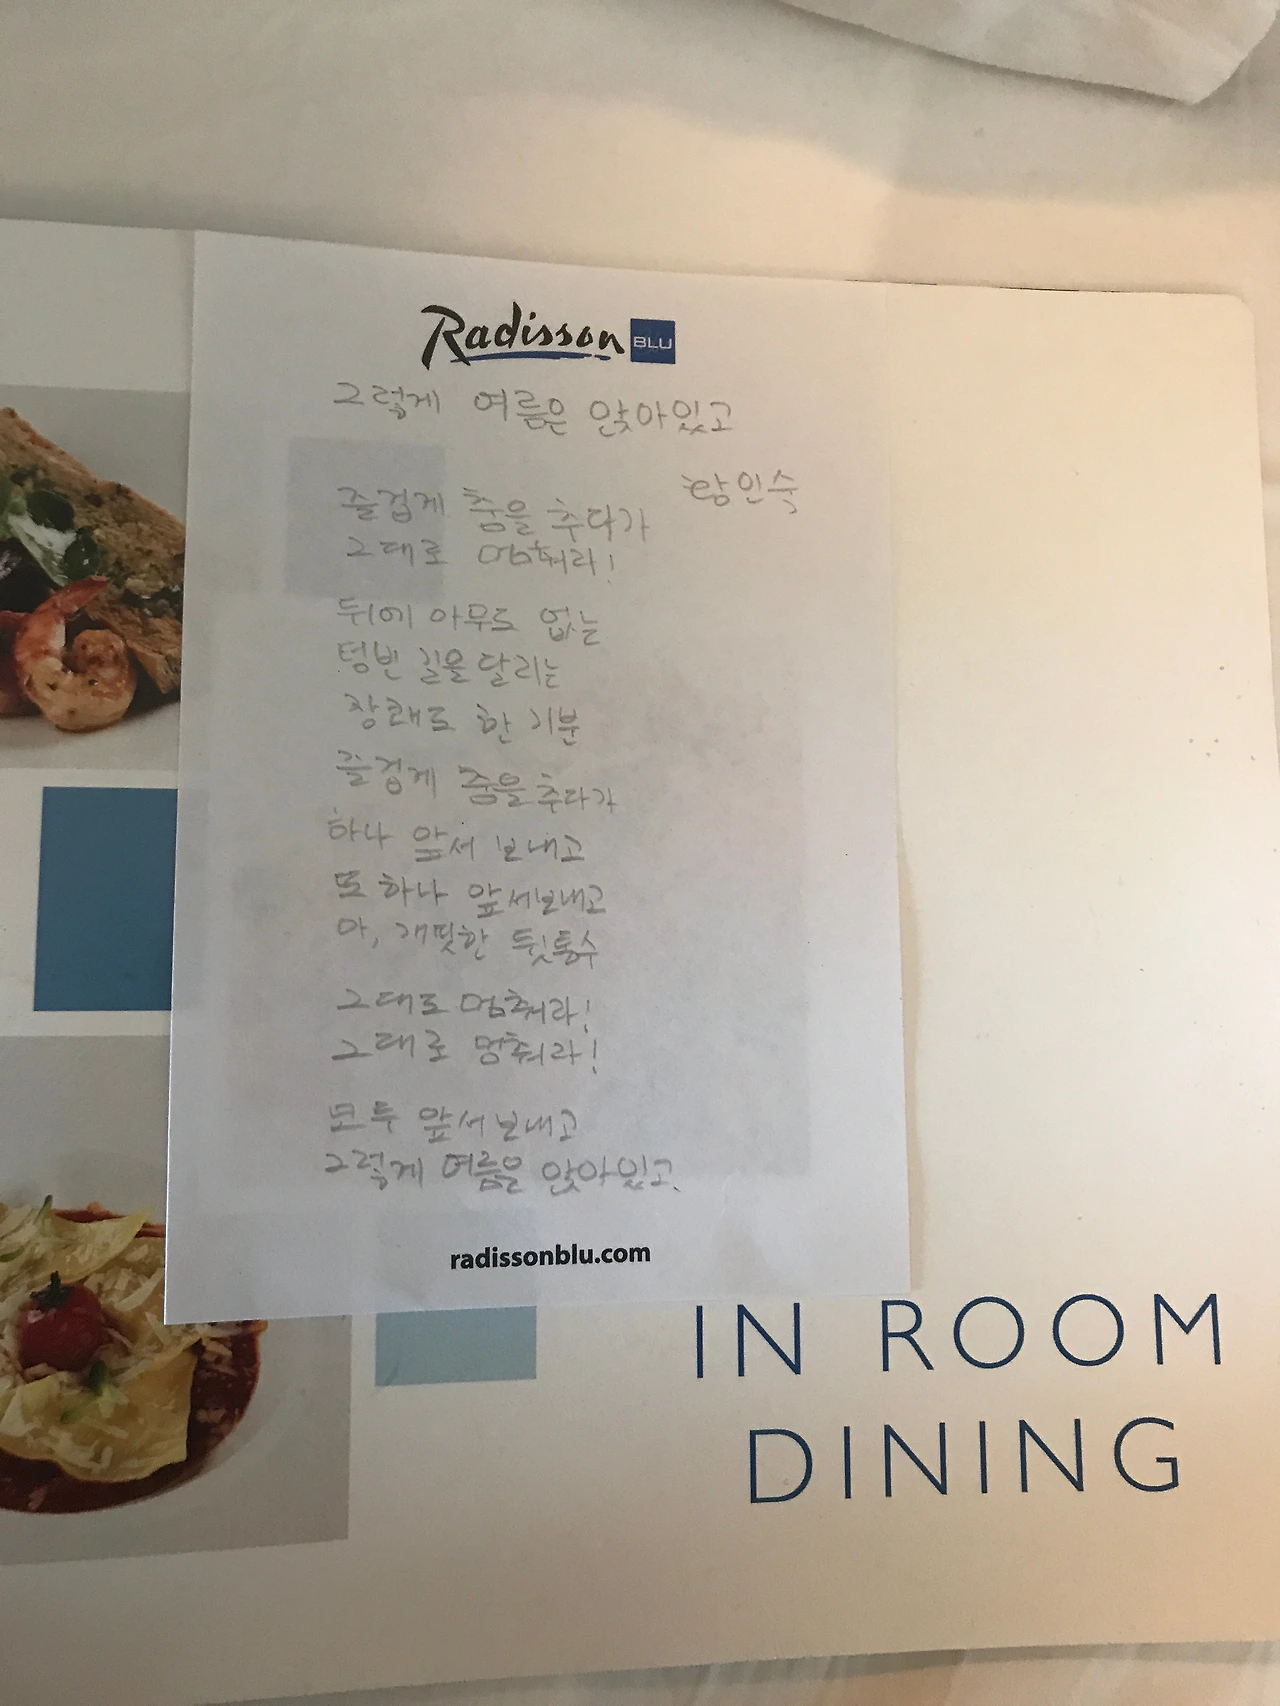 Radisson BLU
그렇게 여름은 앉아있고
황인숙
즐겁게 춤을 추다가
그대로 멈춰라!
뒤에 아무도 없는
텅빈 길을 달리는
장쾌도 한 기분
즐겁게 춤을 추다가
하나 앞서 보내고
또 하나 앞서 보내고
아, 개핏한 뒷통수
그대로 멈춰라!
그대로 멈춰라!
모두 앞서 보내고
그렇게 여름은 앉아있고.
radissonblu.com
IN ROOM
DINING